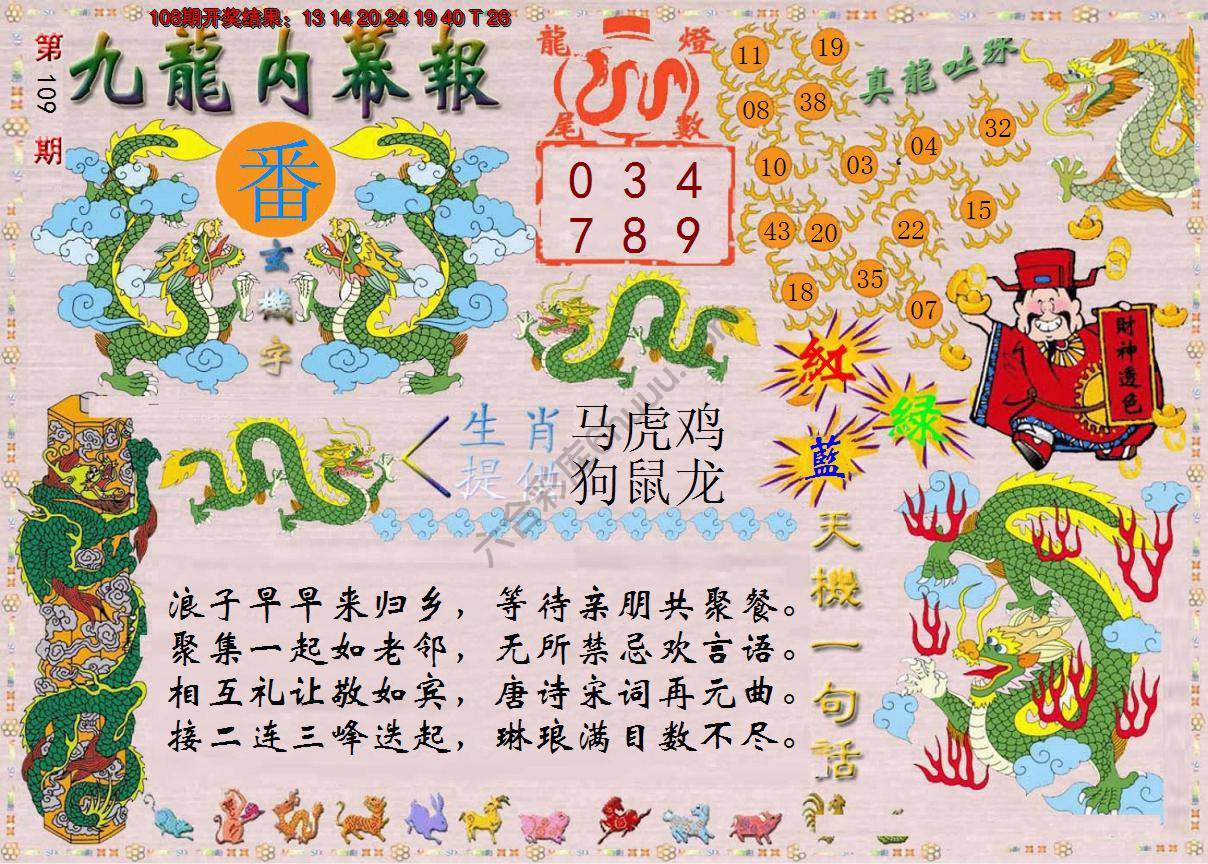 108期开奖结果：13 14 20 24 19 40 T 26
第109期
九龍内幕報
番
玄機字
龍燈
尾數
0 3 4
7 8 9
真龍吐珠
11 19
08 38
10 03 04 32
43 20 22 15
18 35 07
財神透色
紅
綠
藍
生肖 马虎鸡
提供 狗鼠龙
天機一句話
浪子早早来归乡，等待亲朋共聚餐。
聚集一起如老邻，无所禁忌欢言语。
相互礼让敬如宾，唐诗宋词再元曲。
接二连三峰迭起，琳琅满目数不尽。